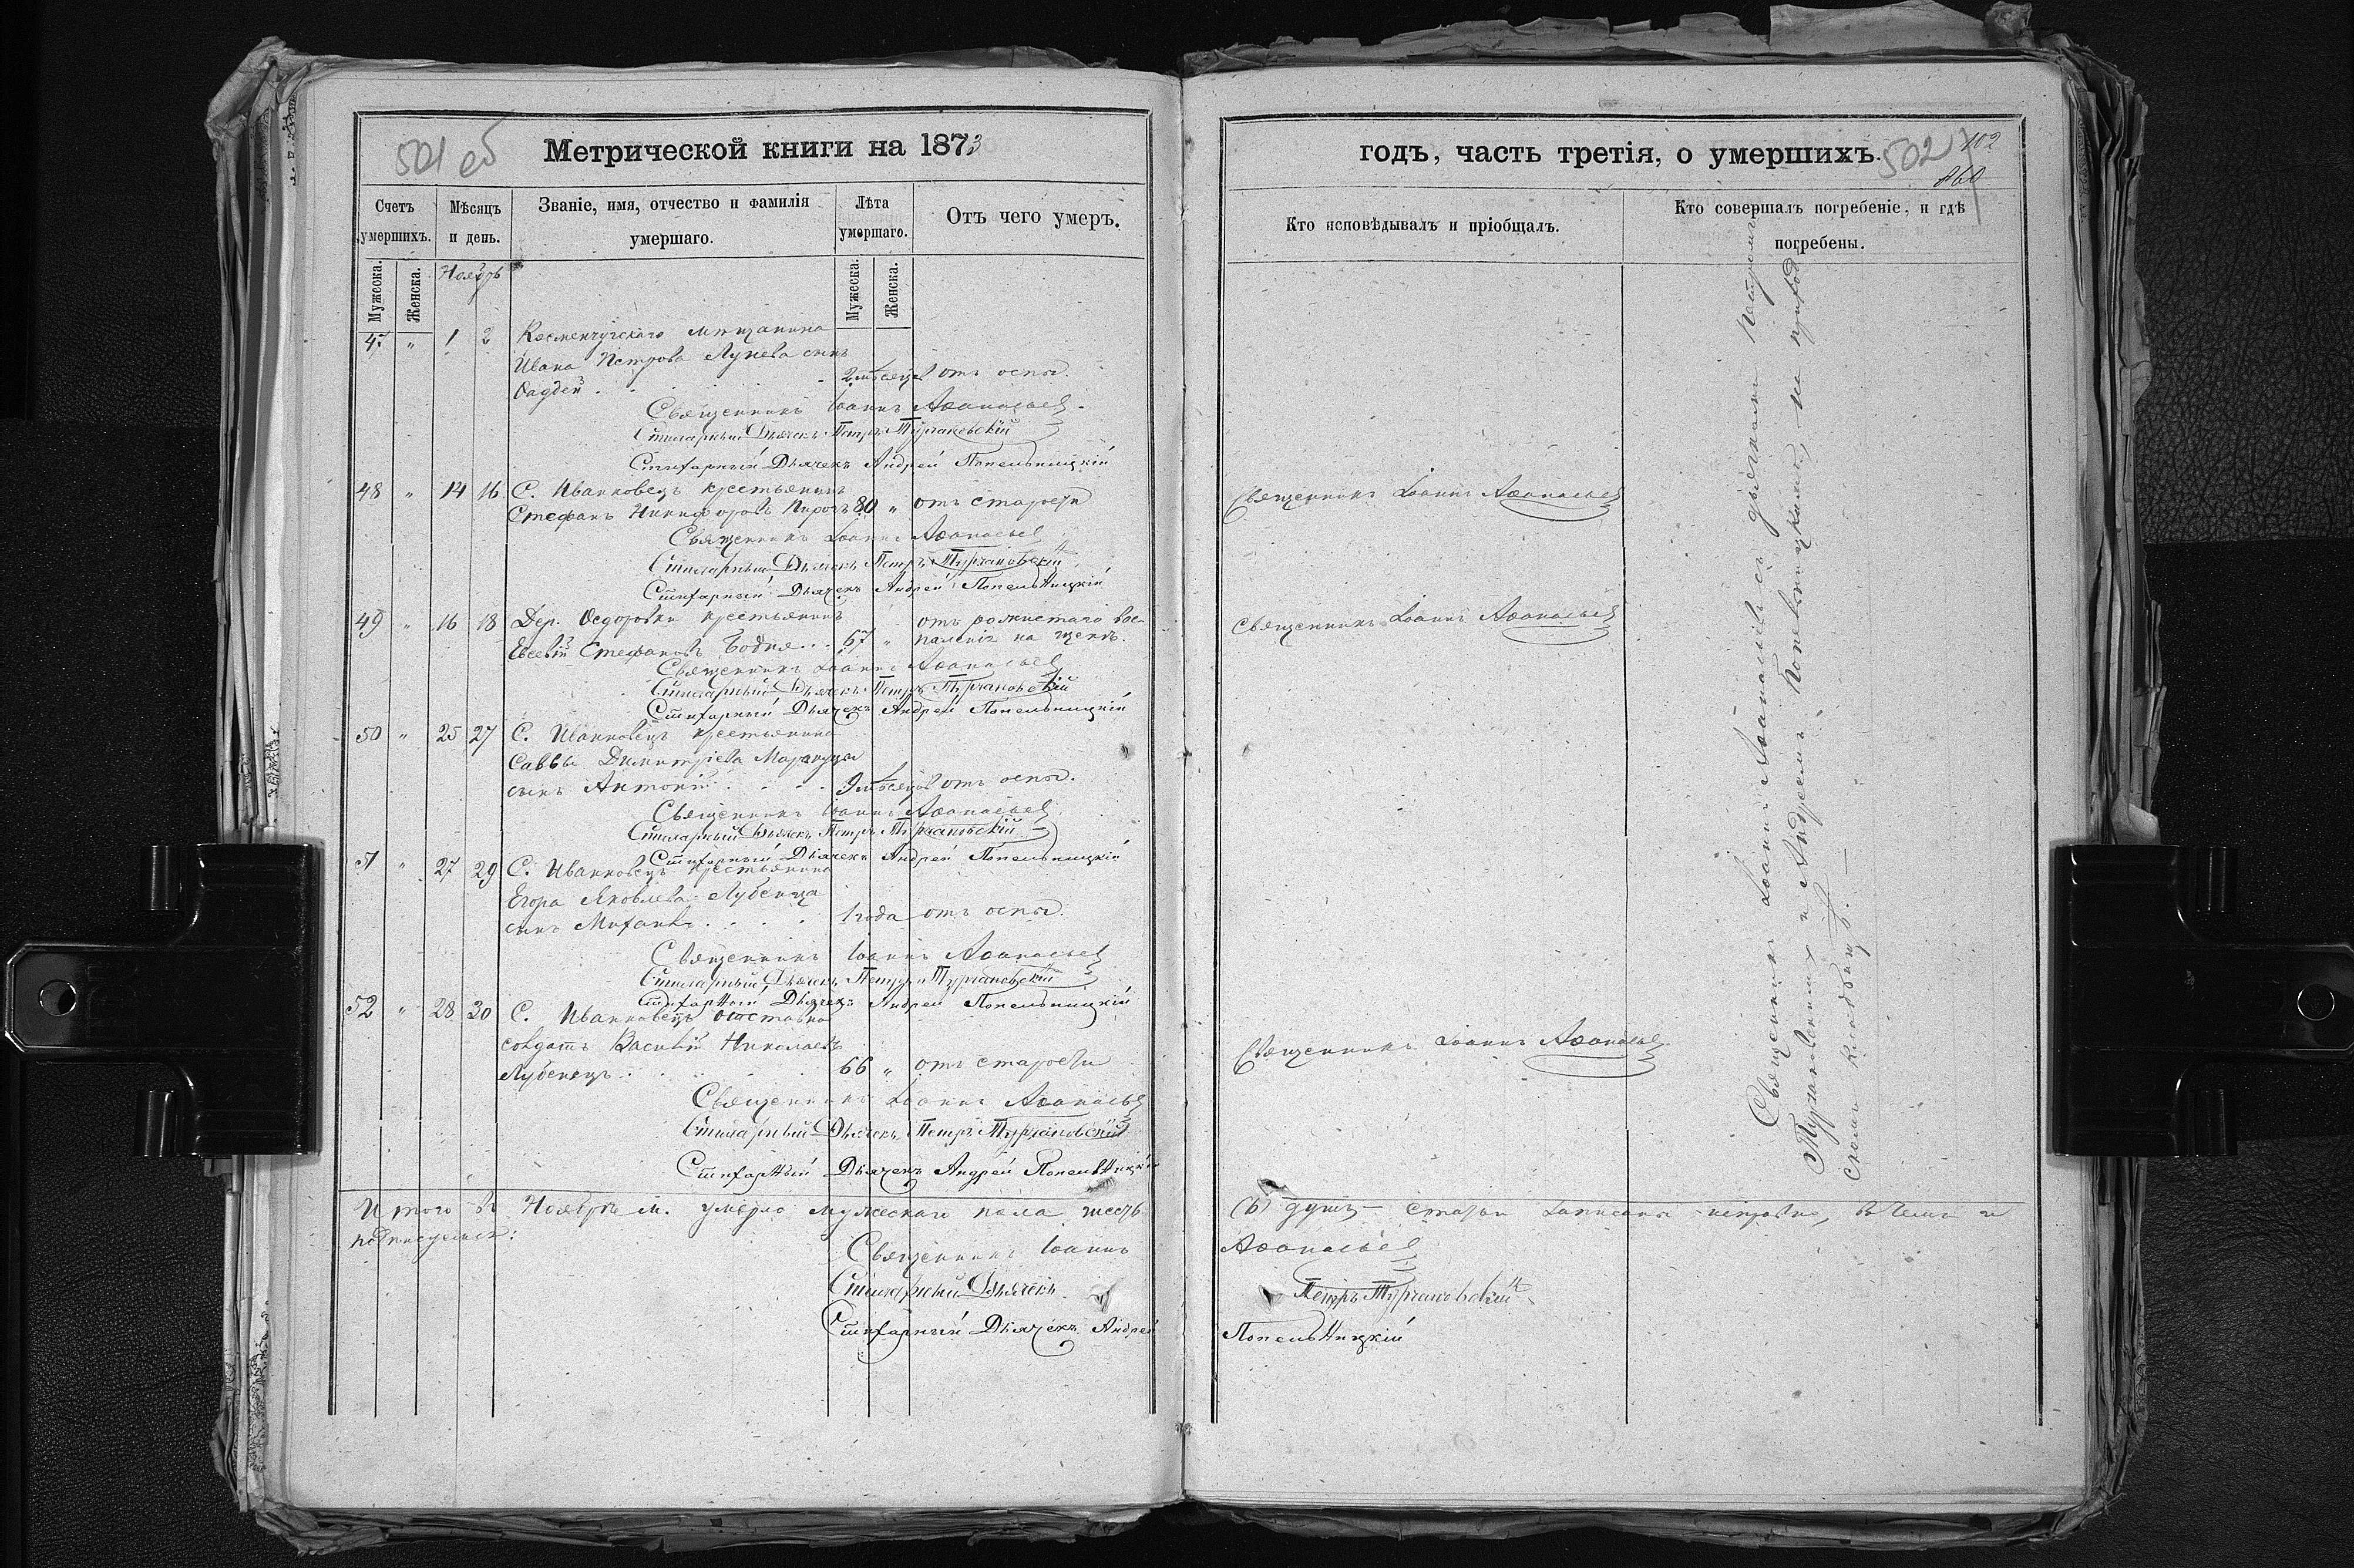 501 об
Метрической книги на 1873
Счетъ умершихъ.
Мѣсяцъ и день.
Званіе, имя, отчество и фамилія умершаго.
Лѣта умершаго.
Отъ чего умеръ.
Мужеска.
Женска.
Ноябрь
Мужеска.
Женска.
47 " 1 2 Кременчугскаго мѣщанина
Ивана Петрова Лунева сынъ
Фаддей . . . 2 мѣсяцев отъ оспы.
Священникъ Іоаннъ Аѳанасьев
Стихарный Дьячекъ Петръ Турчановскій
Стихарный Дьячекъ Андрей Попельницкій
48 " 14 16 С. Иванковецъ крестьянинъ
Стефанъ Никифоровъ Пирогъ 80 " отъ старости
Священникъ Іоаннъ Аѳанасьев
Стихарный Дьячекъ Петръ Турчановскій
Стихарный Дьячекъ Андрей Попельницкій
49 " 16 18 Дер. Ѳедоровки крестьянинъ отъ рожистаго вос-
Евсевій Стефановъ Бодня . . 67 " паленія на щекѣ.
Священникъ Іоаннъ Аѳанасьев
Стихарный Дьячекъ Петръ Турчановскій
Стихарный Дьячекъ Андрей Попельницкій
50 " 25 27 С. Иванковецъ крестьянина
Саввы Димитріева
сынъ Антоній . . . 9 мѣсяцев отъ оспы.
Священникъ Іоаннъ Аѳанасьев
Стихарный Дьячекъ Петръ Турчановскій
Стихарный Дьячекъ Андрей Попельницкій
51 " 27 29 С. Иванковецъ крестьянина
Егора Яковлева Лубенца
сынъ Михаилъ . . . 1 года отъ оспы.
Священникъ Іоаннъ Аѳанасьев
Стихарный Дьячекъ Петръ Турчановскій
Стихарный Дьячекъ Андрей Попельницкій
52 " 28 30 С. Иванковецъ
солдатъ Василій Николаевъ
Лубенецъ . . . 66 " отъ старости
Священникъ Іоаннъ Аѳанасьев
Стихарный Дьячекъ Петръ Турчановскій
Стихарный Дьячекъ Андрей Попельницкій
Итого въ Ноябрѣ м. умерло мужескаго пола шесть
подписуемся:
Священникъ Іоаннъ
Стихарный Дьячекъ
Стихарный Дьячекъ Андрей
годъ, часть третія, о умершихъ.
502
102
860
Кто исповѣдывалъ и пріобщалъ.
Кто совершалъ погребеніе, и гдѣ погребены.
Священникъ Іоаннъ Аѳанасьев
Священникъ Іоаннъ Аѳанасьев
Священникъ Іоаннъ Аѳанасьев
Священникъ Іоаннъ Аѳанасьев съ дьячками Петромъ
Турчановскимъ и Андреемъ Попельницкимъ, на приход
скомъ кладбищѣ. —
(6) душъ — статьи записаны исправно, въ чемъ и
Аѳанасьев
Петръ Турчановскій
Попельницкій